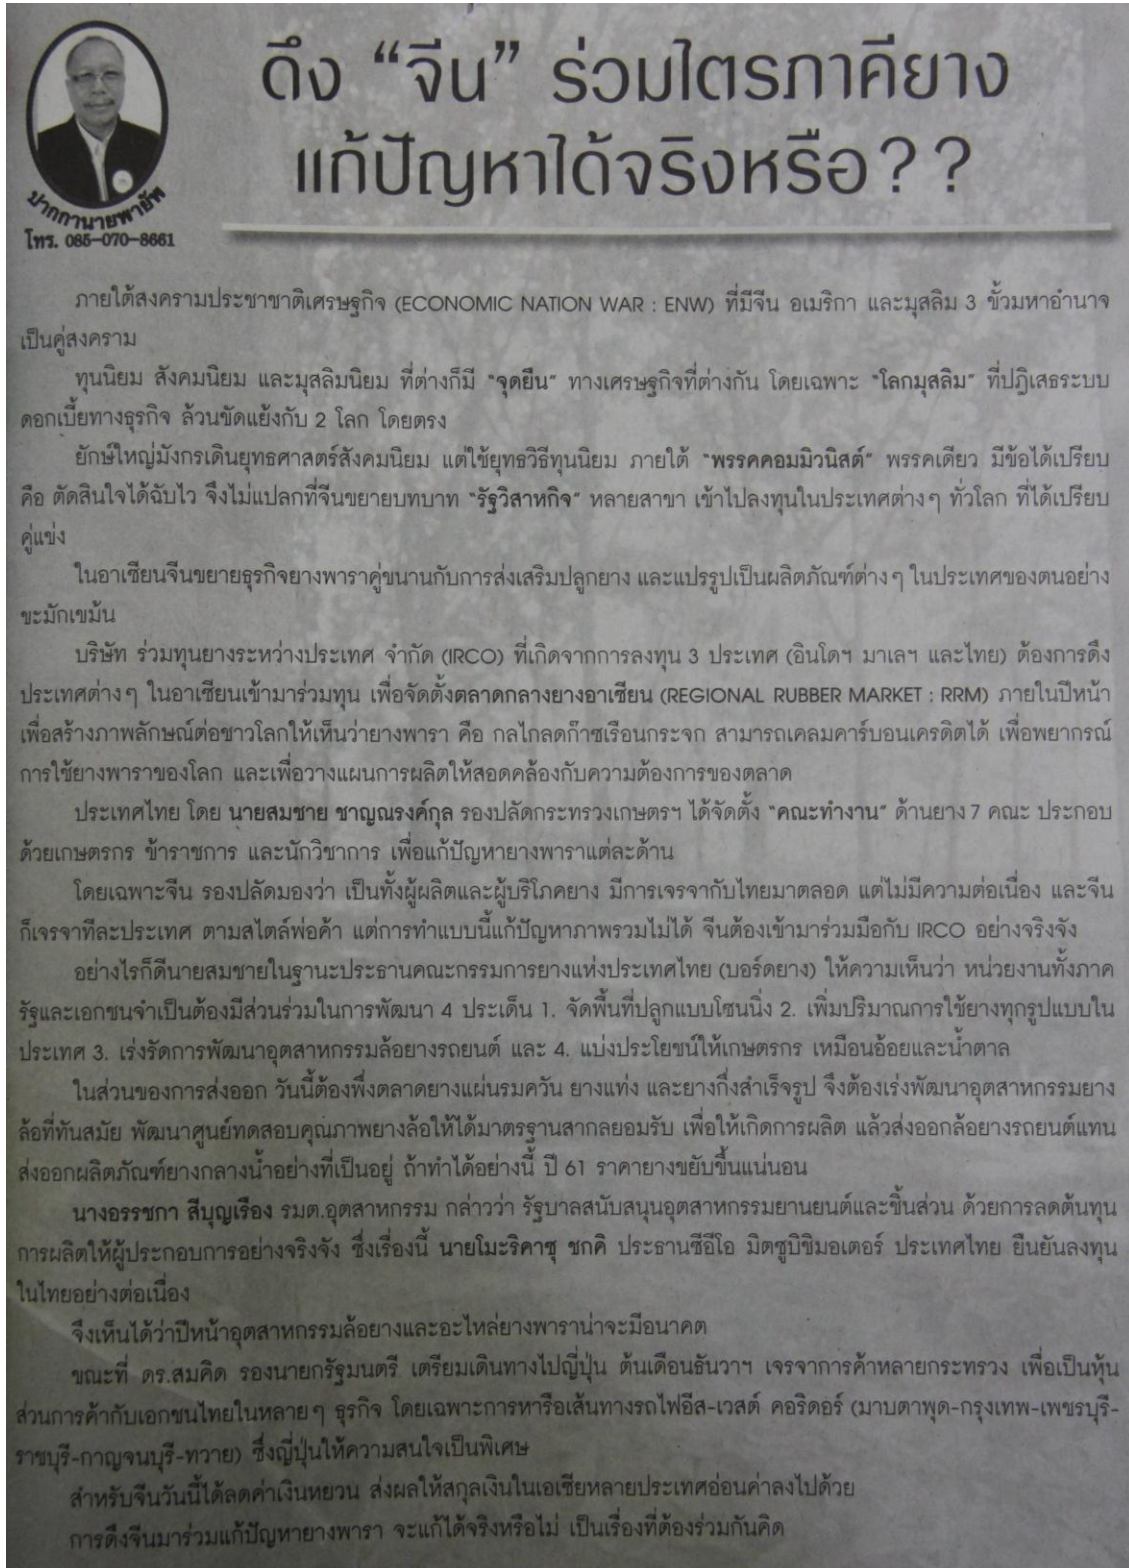 ดึง “จีน” ร่วมไตรภาคียาง
แก้ปัญหาได้จริงหรือ??
ปากกานายพาชีพ
โทร. 085-070-8661
ภายใต้สงครามประชาชาติเศรษฐกิจ (ECONOMIC NATION WAR : ENW) ที่มีจีน อเมริกา และมุสลิม 3 ขั้วมหาอำนาจ
เป็นคู่สงคราม
ทุนนิยม สังคมนิยม และมุสลิมนิยม ที่ต่างก็มี “จุดยืน” ทางเศรษฐกิจที่ต่างกัน โดยเฉพาะ “โลกมุสลิม” ที่ปฏิเสธระบบ
ดอกเบี้ยทางธุรกิจ ล้วนขัดแย้งกับ 2 โลก โดยตรง
ยักษ์ใหญ่มังกรเดินยุทธศาสตร์สังคมนิยม แต่ใช้ยุทธวิธีทุนนิยม ภายใต้ “พรรคคอมมิวนิสต์” พรรคเดียว มีข้อได้เปรียบ
คือ ตัดสินใจได้ฉับไว จึงไม่แปลกที่จีนขยายบทบาท “รัฐวิสาหกิจ” หลายสาขา เข้าไปลงทุนในประเทศต่างๆ ทั่วโลก ที่ได้เปรียบ
คู่แข่ง
ในอาเซียนจีนขยายธุรกิจยางพาราคู่ขนานกับการส่งเสริมปลูกยาง และแปรรูปเป็นผลิตภัณฑ์ต่างๆ ในประเทศของตนอย่าง
ขะมักเขม้น
บริษัท ร่วมทุนยางระหว่างประเทศ จำกัด (IRCO) ที่เกิดจากการลงทุน 3 ประเทศ (อินโดฯ มาเลฯ และไทย) ต้องการดึง
ประเทศต่างๆ ในอาเซียนเข้ามาร่วมทุน เพื่อจัดตั้งตลาดกลางยางอาเซียน (REGIONAL RUBBER MARKET : RRM) ภายในปีหน้า
เพื่อสร้างภาพลักษณ์ต่อชาวโลกให้เห็นว่ายางพารา คือ กลไกลดก๊าซเรือนกระจก สามารถเคลมคาร์บอนเครดิตได้ เพื่อพยากรณ์
การใช้ยางพาราของโลก และเพื่อวางแผนการผลิตให้สอดคล้องกับความต้องการของตลาด
ประเทศไทย โดย นายสมชาย ชาญณรงค์กุล รองปลัดกระทรวงเกษตรฯ ได้จัดตั้ง “คณะทำงาน” ด้านยาง 7 คณะ ประกอบ
ด้วยเกษตรกร ข้าราชการ และนักวิชาการ เพื่อแก้ปัญหายางพาราแต่ละด้าน
โดยเฉพาะจีน รองปลัดมองว่า เป็นทั้งผู้ผลิตและผู้บริโภคยาง มีการเจรจากับไทยมาตลอด แต่ไม่มีความต่อเนื่อง และจีน
ก็เจรจาทีละประเทศ ตามสไตล์พ่อค้า แต่การทำแบบนี้แก้ปัญหาภาพรวมไม่ได้ จีนต้องเข้ามาร่วมมือกับ IRCO อย่างจริงจัง
อย่างไรก็ดีนายสมชายในฐานะประธานคณะกรรมการยางแห่งประเทศไทย (บอร์ดยาง) ให้ความเห็นว่า หน่วยงานทั้งภาค
รัฐและเอกชนจำเป็นต้องมีส่วนร่วมในการพัฒนา 4 ประเด็น 1. จัดพื้นที่ปลูกแบบโซนนิ่ง 2. เพิ่มปริมาณการใช้ยางทุกรูปแบบใน
ประเทศ 3. เร่งรัดการพัฒนาอุตสาหกรรมล้อยางรถยนต์ และ 4. แบ่งประโยชน์ให้เกษตรกร เหมือนอ้อยและน้ำตาล
ในส่วนของการส่งออก วันนี้ต้องพึ่งตลาดยางแผ่นรมควัน ยางแท่ง และยางกึ่งสำเร็จรูป จึงต้องเร่งพัฒนาอุตสาหกรรมยาง
ล้อที่ทันสมัย พัฒนาศูนย์ทดสอบคุณภาพยางล้อให้ได้มาตรฐานสากลยอมรับ เพื่อให้เกิดการผลิต แล้วส่งออกล้อยางรถยนต์แทน
ส่งออกผลิตภัณฑ์ยางกลางน้ำอย่างที่เป็นอยู่ ถ้าทำได้อย่างนี้ ปี 61 ราคายางขยับขึ้นแน่นอน
นางอรรชกา สีบุญเรือง รมต.อุตสาหกรรม กล่าวว่า รัฐบาลสนับสนุนอุตสาหกรรมยานยนต์และชิ้นส่วน ด้วยการลดต้นทุน
การผลิตให้ผู้ประกอบการอย่างจริงจัง ซึ่งเรื่องนี้ นายโมะริคาซุ ชกคิ ประธานซีอีโอ มิตซูบิชิมอเตอร์ ประเทศไทย ยืนยันลงทุน
ในไทยอย่างต่อเนื่อง
จึงเห็นได้ว่าปีหน้าอุตสาหกรรมล้อยางและอะไหล่ยางพาราน่าจะมีอนาคต
ขณะที่ ดร.สมคิด รองนายกรัฐมนตรี เตรียมเดินทางไปญี่ปุ่น ต้นเดือนธันวาฯ เจรจาการค้าหลายกระทรวง เพื่อเป็นหุ้น
ส่วนการค้ากับเอกชนไทยในหลายๆ ธุรกิจ โดยเฉพาะการหารือเส้นทางรถไฟอีส-เวสต์ คอริดอร์ (มาบตาพุด-กรุงเทพ-เพชรบุรี-
ราชบุรี-กาญจนบุรี-ทวาย) ซึ่งญี่ปุ่นให้ความสนใจเป็นพิเศษ
สำหรับจีนวันนี้ได้ลดค่าเงินหยวน ส่งผลให้สกุลเงินในเอเซียหลายประเทศอ่อนค่าลงไปด้วย
การดึงจีนมาร่วมแก้ปัญหายางพารา จะแก้ได้จริงหรือไม่ เป็นเรื่องที่ต้องร่วมกันคิด